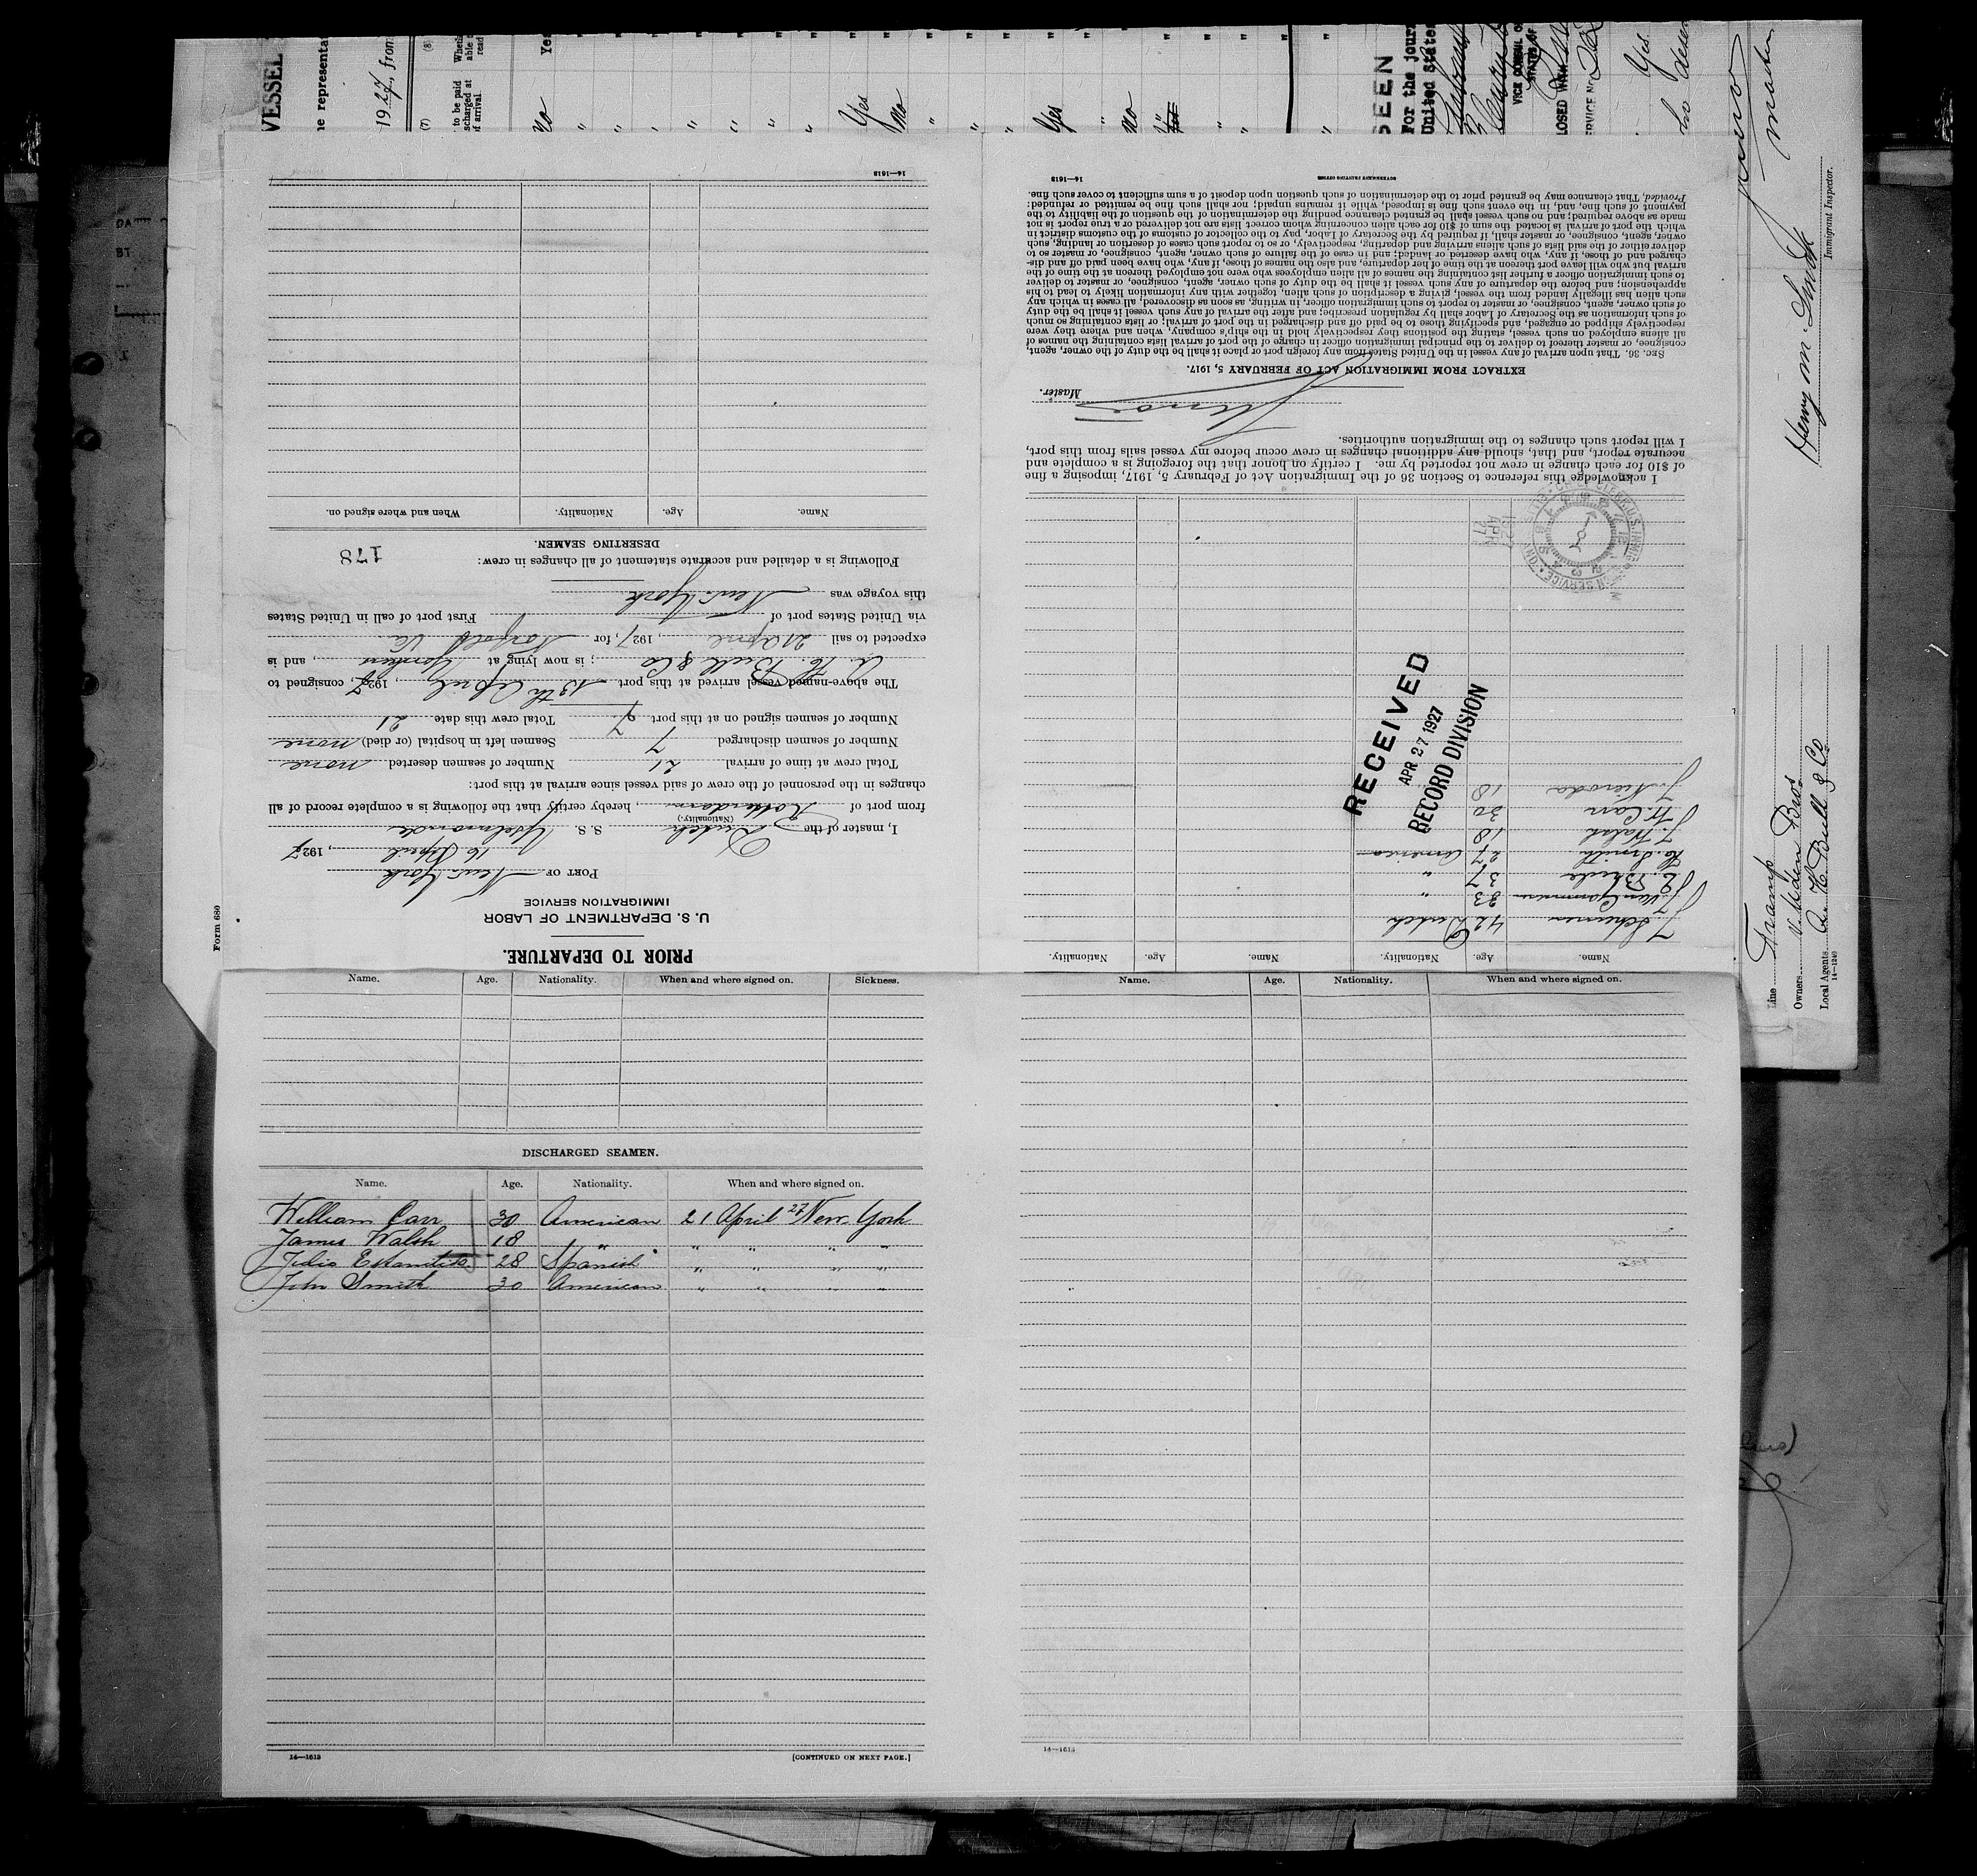 VESSEL
1927, from
(7)
(8)
to be paid
scharged at
of arrival.
Wheth
able
read
No
Yes
"
"
"
"
"
"
"
Yes
No
"
"
"
Yes
"
No
"
"
"
"
SEEN
For the jour
United State
VICE CONSUL O
STATES OF
LOSED WITH
RVICE NO
Yes
Master
Henry M. Smith
Immigrant Inspector.
Line Tramp
Owners v. Uden Bros
Local Agents A. H. Bull & Co
14—1240
Form 680
PRIOR TO DEPARTURE.
U. S. DEPARTMENT OF LABOR
IMMIGRATION SERVICE
PORT OF New York
16 April, 1927
I, master of the Dutch S. S. Yselmonde
(Nationality.)
from port of Rotterdam, hereby certify that the following is a complete record of all
changes in the personnel of the crew of said vessel since arrival at this port:
Total crew at time of arrival 21 Number of seamen deserted none
Number of seamen discharged 7 Seamen left in hospital (or died) none
Number of seamen signed on at this port 7 Total crew this date 21
The above-named vessel arrived at this port 13th April, 1927, consigned to
A. H. Bull & Co; is now lying at Yonkers, and is
expected to sail 21 April, 1927, for Norfolk Va
via United States port of First port of call in United States
this voyage was New York
Following is a detailed and accurate statement of all changes in crew:
178
DESERTING SEAMEN.
Name. Age. Nationality. When and where signed on.
14—1613
Name. Age. Nationality. When and where signed on. Sickness.
DISCHARGED SEAMEN.
Name. Age. Nationality. When and where signed on.
William Carr 30 American 21 April 27 New York
James Walsh 18 " " " " "
Julio 28 Spanish " " " "
John Smith 30 American " " " "
14—1613
[CONTINUED ON NEXT PAGE.]
Name. Age. Nationality. When and where signed on.
14—1613
Name. Age. Nationality. Name. Age. Nationality.
J. Scheuner 42 Dutch
J. van Gammeren 23 "
L. Breide 37 "
H. Smith 27 America
J. Walsh 18
W. Carr 30
J. Nieroda 18
RECEIVED
APR 27 1927
RECORD DIVISION
1927
APR
21
U.S. IMMIGRATION SERVICE
I acknowledge this reference to Section 36 of the Immigration Act of February 5, 1917, imposing a fine
of $10 for each change in crew not reported by me. I certify on honor that the foregoing is a complete and
accurate report, and that, should any additional changes in crew occur before my vessel sails from this port,
I will report such changes to the immigration authorities.
Master.
EXTRACT FROM IMMIGRATION ACT OF FEBRUARY 5, 1917.
SEC. 36. That upon arrival of any vessel in the United States from any foreign port or place it shall be the duty of the owner, agent,
consignee, or master thereof to deliver to the principal immigration officer in charge of the port of arrival lists containing the names of
all aliens employed on such vessel, stating the positions they respectively hold in the ship's company, when and where they were
respectively shipped or engaged, and specifying those to be paid off and discharged in the port of arrival; or lists containing so much
of such information as the Secretary of Labor shall by regulation prescribe; and after the arrival of any such vessel it shall be the duty
of such owner, agent, consignee, or master to report to such immigration officer, in writing, as soon as discovered, all cases in which any
such alien has illegally landed from the vessel, giving a description of such alien, together with any information likely to lead to his
apprehension; and before the departure of any such vessel it shall be the duty of such owner, agent, consignee, or master to deliver
to such immigration officer a further list containing the names of all alien employees who were not employed thereon at the time of the
arrival but who will leave port thereon at the time of her departure, and also the names of those, if any, who have been paid off and dis-
charged and of those, if any, who have deserted or landed; and in case of the failure of such owner, agent, consignee, or master so to
deliver either of the said lists of such aliens arriving and departing, respectively, or so to report such cases of desertion or landing, such
owner, agent, consignee, or master shall, if required by the Secretary of Labor, pay to the collector of customs of the customs district in
which the port of arrival is located the sum of $10 for each alien concerning whom correct lists are not delivered or a true report is not
made as above required; and no such vessel shall be granted clearance pending the determination of the question of the liability to the
payment of such fine, and, in the event such fine is imposed, while it remains unpaid; nor shall such fine be remitted or refunded:
Provided, That clearance may be granted prior to the determination of such question upon deposit of a sum sufficient to cover such fine.
GOVERNMENT PRINTING OFFICE
14—1613